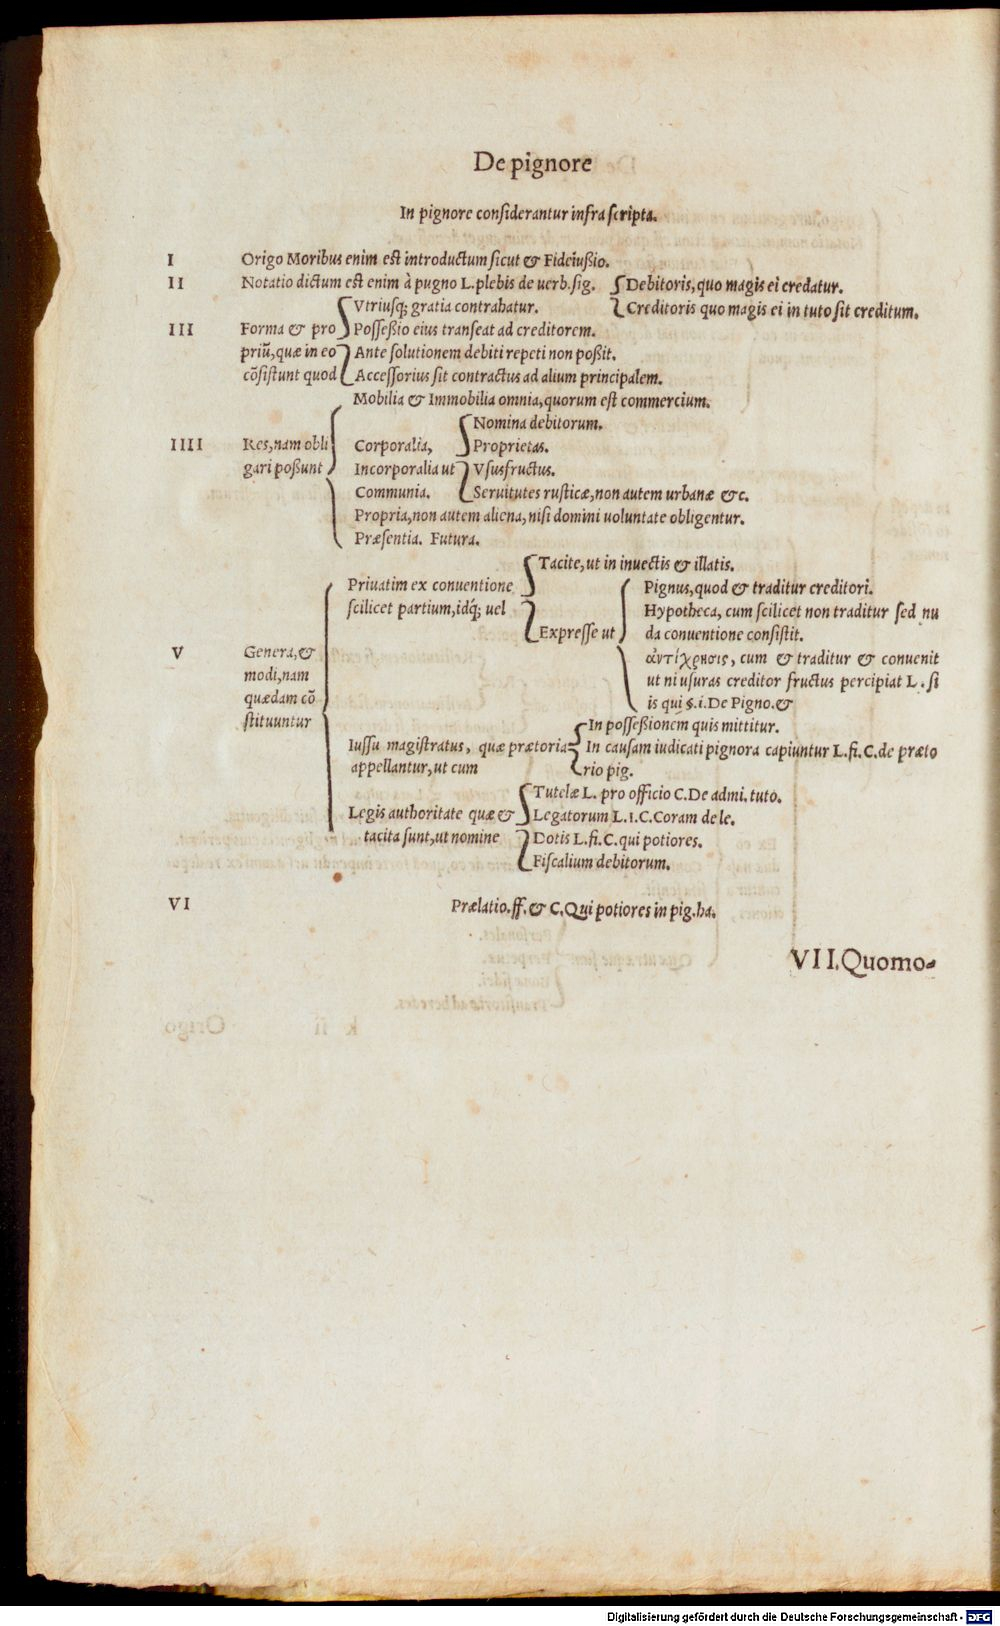 De pignore
In pignore considerantur infra scripta.
I Origo Moribus enim est introductum sicut & Fideiußio.
II Notatio dictum est enim à pugno L.plebis de uerb.sig. Debitoris,quo magis ei credatur.
Vtriusq; gratia contrahatur. Creditoris quo magis ei in tuto sit creditum.
III Forma & pro Posseßio eius transeat ad creditorem.
priū,quæ in eo Ante solutionem debiti repeti non poßit.
cōsistunt quod Accessorius sit contractus ad alium principalem.
Mobilia & Immobilia omnia,quorum est commercium.
Nomina debitorum.
IIII Res,nam obli Corporalia, Proprietas.
gari poßunt Incorporalia ut Vsusfructus.
Communia. Seruitutes rusticæ,non autem urbanæ &c.
Propria,non autem aliena,nisi domini uoluntate obligentur.
Præsentia. Futura.
Tacite,ut in inuectis & illatis.
Priuatim ex conuentione Pignus,quod & traditur creditori.
scilicet partium,idq; uel Hypotheca, cum scilicet non traditur sed nu
Expresse ut da conuentione consistit.
V Genera,& ἀντίχρησις, cum & traditur & conuenit
modi,nam ut ni usuras creditor fructus percipiat L. si
quædam cō is qui §.i.De Pigno.&
stituuntur In posseßionem quis mittitur.
Iussu magistratus, quæ prætoria In causam iudicati pignora capiuntur L.fi.C.de præto
appellantur,ut cum rio pig.
Tutelæ L. pro officio C.De admi.tuto.
Legis authoritate quæ & Legatorum L.I.C.Coram de le.
tacita sunt,ut nomine Dotis L.fi.C.qui potiores.
Fiscalium debitorum.
VI Prælatio.ff.& C.Qui potiores in pig.ha.
VII.Quomo-
Digitalisierung gefördert durch die Deutsche Forschungsgemeinschaft - DFG